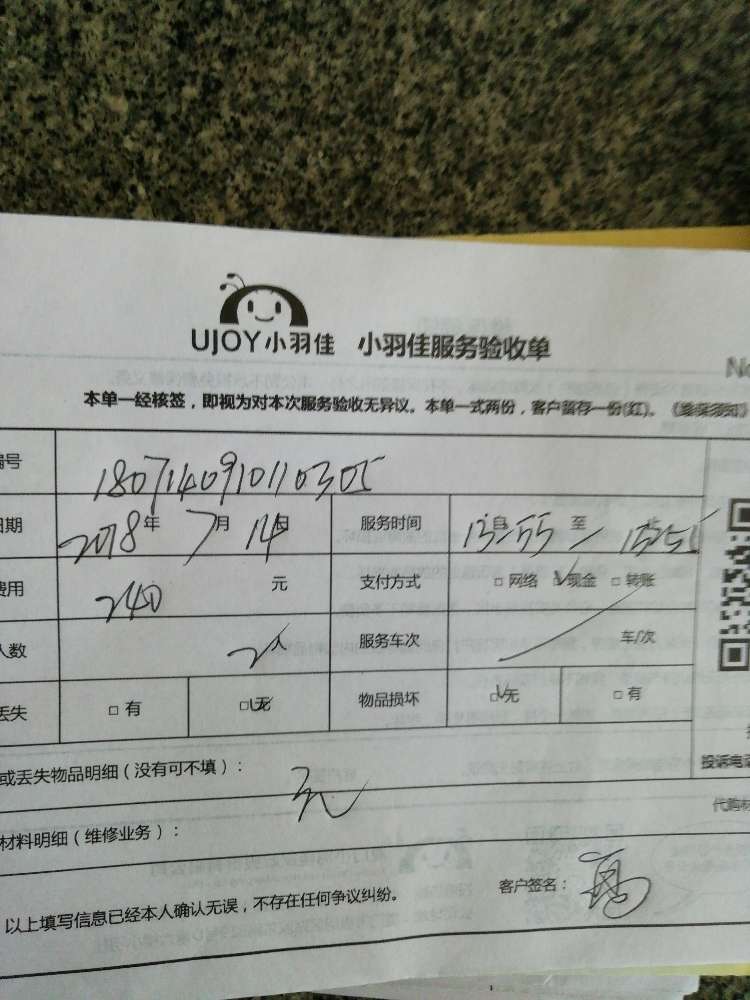 UJOY小羽佳 小羽佳服务验收单
No
本单一经核签，即视为对本次服务验收无异议。本单一式两份，客户留存一份(红)。《维保须知》
编号 1807140910110305
日期 2018年 7月 14日 服务时间 自 至 止 13:55 — 15:55
费用 240 元 支付方式 □网络 ☑现金 □转账
人数 2人 服务车次 车/次
丢失 □有 ☑无 物品损坏 ☑无 □有
投诉电
或丢失物品明细（没有可不填）：
无
代购材
材料明细（维修业务）：
以上填写信息已经本人确认无误，不存在任何争议纠纷。 客户签名：